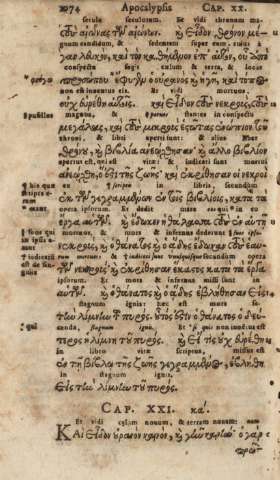 1074 Apocalypsis CAP. XX.
secula seculorum. Et vidi thronum ma-
αἰῶνας τῶν αἰώνων. κὶ Εἶδον θρόνον μέ-
gnum candidum, & sedentem super eum, cuius à
γαν λευκὸν, καὶ τὸν καθήμενον ἐπ'
conspectu fugit cælum & terra, & locus
ἔφυγεν ὁ οὐρανὸς κ̀ ἡ γῆ, καὶ τόπος
non est inuentus eis. Et vidi mortuos,
οὐχ εὑρέθη αὐτοῖς. καὶ Εἶδον τοὺς νεκροὺς, τοὺς
pusillos magnos, & stantes in conspectu
μεγάλους, καὶ τοὺς μικροὺς ἑστῶτας ἐνώπιον τοῦ
throni, & libri aperti sunt: & alius liber
θρόνου, κ̀ βιβλία ἀνεῴχθησαν· κ̀ ἄλλο βιβλίον
apertus est, qui est vitæ: & iudicati sunt mortui
ἀνεῴχθη, ὅ ἐστι τῆς ζωῆς· καὶ ἐκρίθησαν οἱ νεκροὶ
ex scriptis in libris, secundum
ἐκ τῶν γεγραμμένων ἐν τοῖς βιβλίοις, κατὰ τὰ
opera ipsorum. Et dedit mare
ἔργα αὐτῶν. κ̀ ἔδωκεν ἡ θάλασσα
mortuos, & mors & infernus dederunt
νεκροὺς, κ̀ ὁ θάνατος κ̀ ὁ ᾅδης ἔδωκαν τοὺς
mortuos: & iudicati sunt secundum opera
νεκροὺς· κ̀ ἐκρίθησαν ἕκαστος κατὰ τὰ ἔργα
ipsorum. Et mors & infernus missi sunt in
αὐτῶν. κ̀ ὁ θάνατος κ̀ ὁ ᾅδης ἐβλήθησαν εἰς
stagnum ignis: est mors se-
τὴν λίμνην τοῦ πυρός. οὗτός ἐστιν ὁ θάνατος ὁ δεύ-
qui cunda, stagnum ignis. Et qui non inuentus est
τερος ἡ λίμνη τοῦ πυρός. κ̀ Εἴ τις οὐχ εὑρέθη
in libro vitæ scriptus, missus est
ἐν τῇ βίβλῳ τῆς ζωῆς γεγραμμένος, ἐβλήθη
in stagnum ignis.
Εἰς τὴν λίμνην τοῦ πυρός.
CAP. XXI. κά.
Et vidi cælum nouum, & terram nouam:
ΚΑὶ Εἶδον οὐρανὸν καινὸν, κ̀ γῆν καινήν· ὁ γὰρ